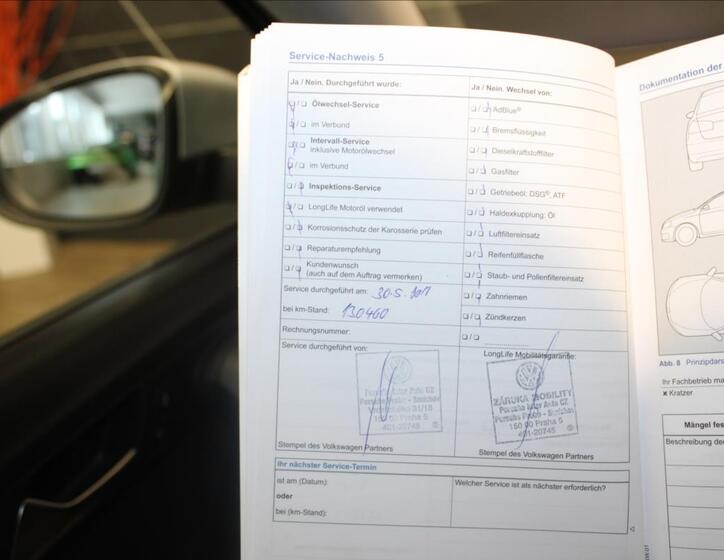 Service-Nachweis 5
Ja / Nein. Durchgeführt wurde:
Ölwechsel-Service
im Verbund
Intervall-Service
inklusive Motorölwechsel
im Verbund
Inspektions-Service
LongLife Motoröl verwendet
Korrosionsschutz der Karosserie prüfen
Reparaturempfehlung
Kundenwunsch
(auch auf dem Auftrag vermerken)
Service durchgeführt am: 30.5.2017
bei km-Stand: 130460
Rechnungsnummer:
Service durchgeführt von:
Porsche Inter Auto CZ
Porsche Praha - Smíchov
160 00 Praha 5
401-20745
Stempel des Volkswagen Partners
Ja / Nein. Wechsel von:
AdBlue®
Bremsflüssigkeit
Dieselkraftstofffilter
Gasfilter
Getriebeöl: DSG®, ATF
Haldexkupplung: Öl
Luftfiltereinsatz
Reifenfüllflasche
Staub- und Pollenfiltereinsatz
Zahnriemen
Zündkerzen
LongLife Mobilitätsgarantie:
ZÁRUKA MOBILITY
Porsche Inter Auto CZ
Porsche Praha - Smíchov
160 00 Praha 5
401-20745
Stempel des Volkswagen Partners
Ihr nächster Service-Termin
ist am (Datum):
oder
bei (km-Stand):
Welcher Service ist als nächster erforderlich?
Dokumentation der
Abb. 8 Prinzipdars
Ihr Fachbetrieb ma
Kratzer
Mängel fes
Beschreibung de